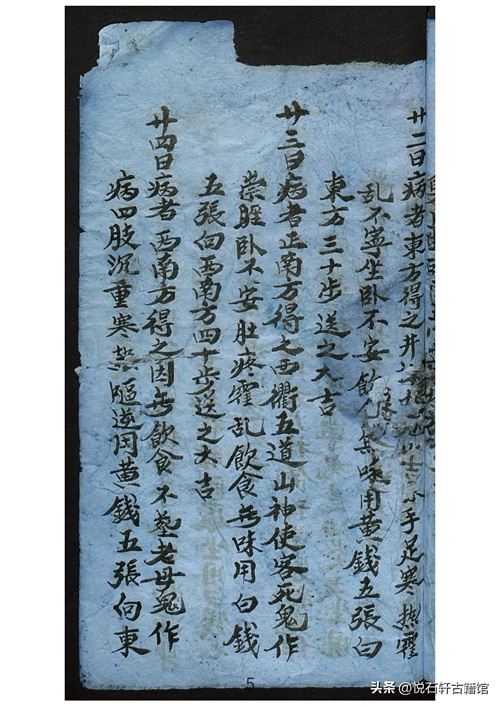 廿二日病者東方得之井手足寒熱霍
乱不寧坐卧不安飲食無味用黄錢五張向
東方三十步送之大吉
廿三日病者正南方得之西衢五道山神使客死鬼作
祟睡卧不安肚疼霍乱飲食無味用白錢
五張向西南方四十步送之大吉
廿四日病者西南方得之因無飲食不墓老母鬼作
病四肢沉重寒熱嘔逆用黄錢五張向東
5
头条@悦石轩古籍馆